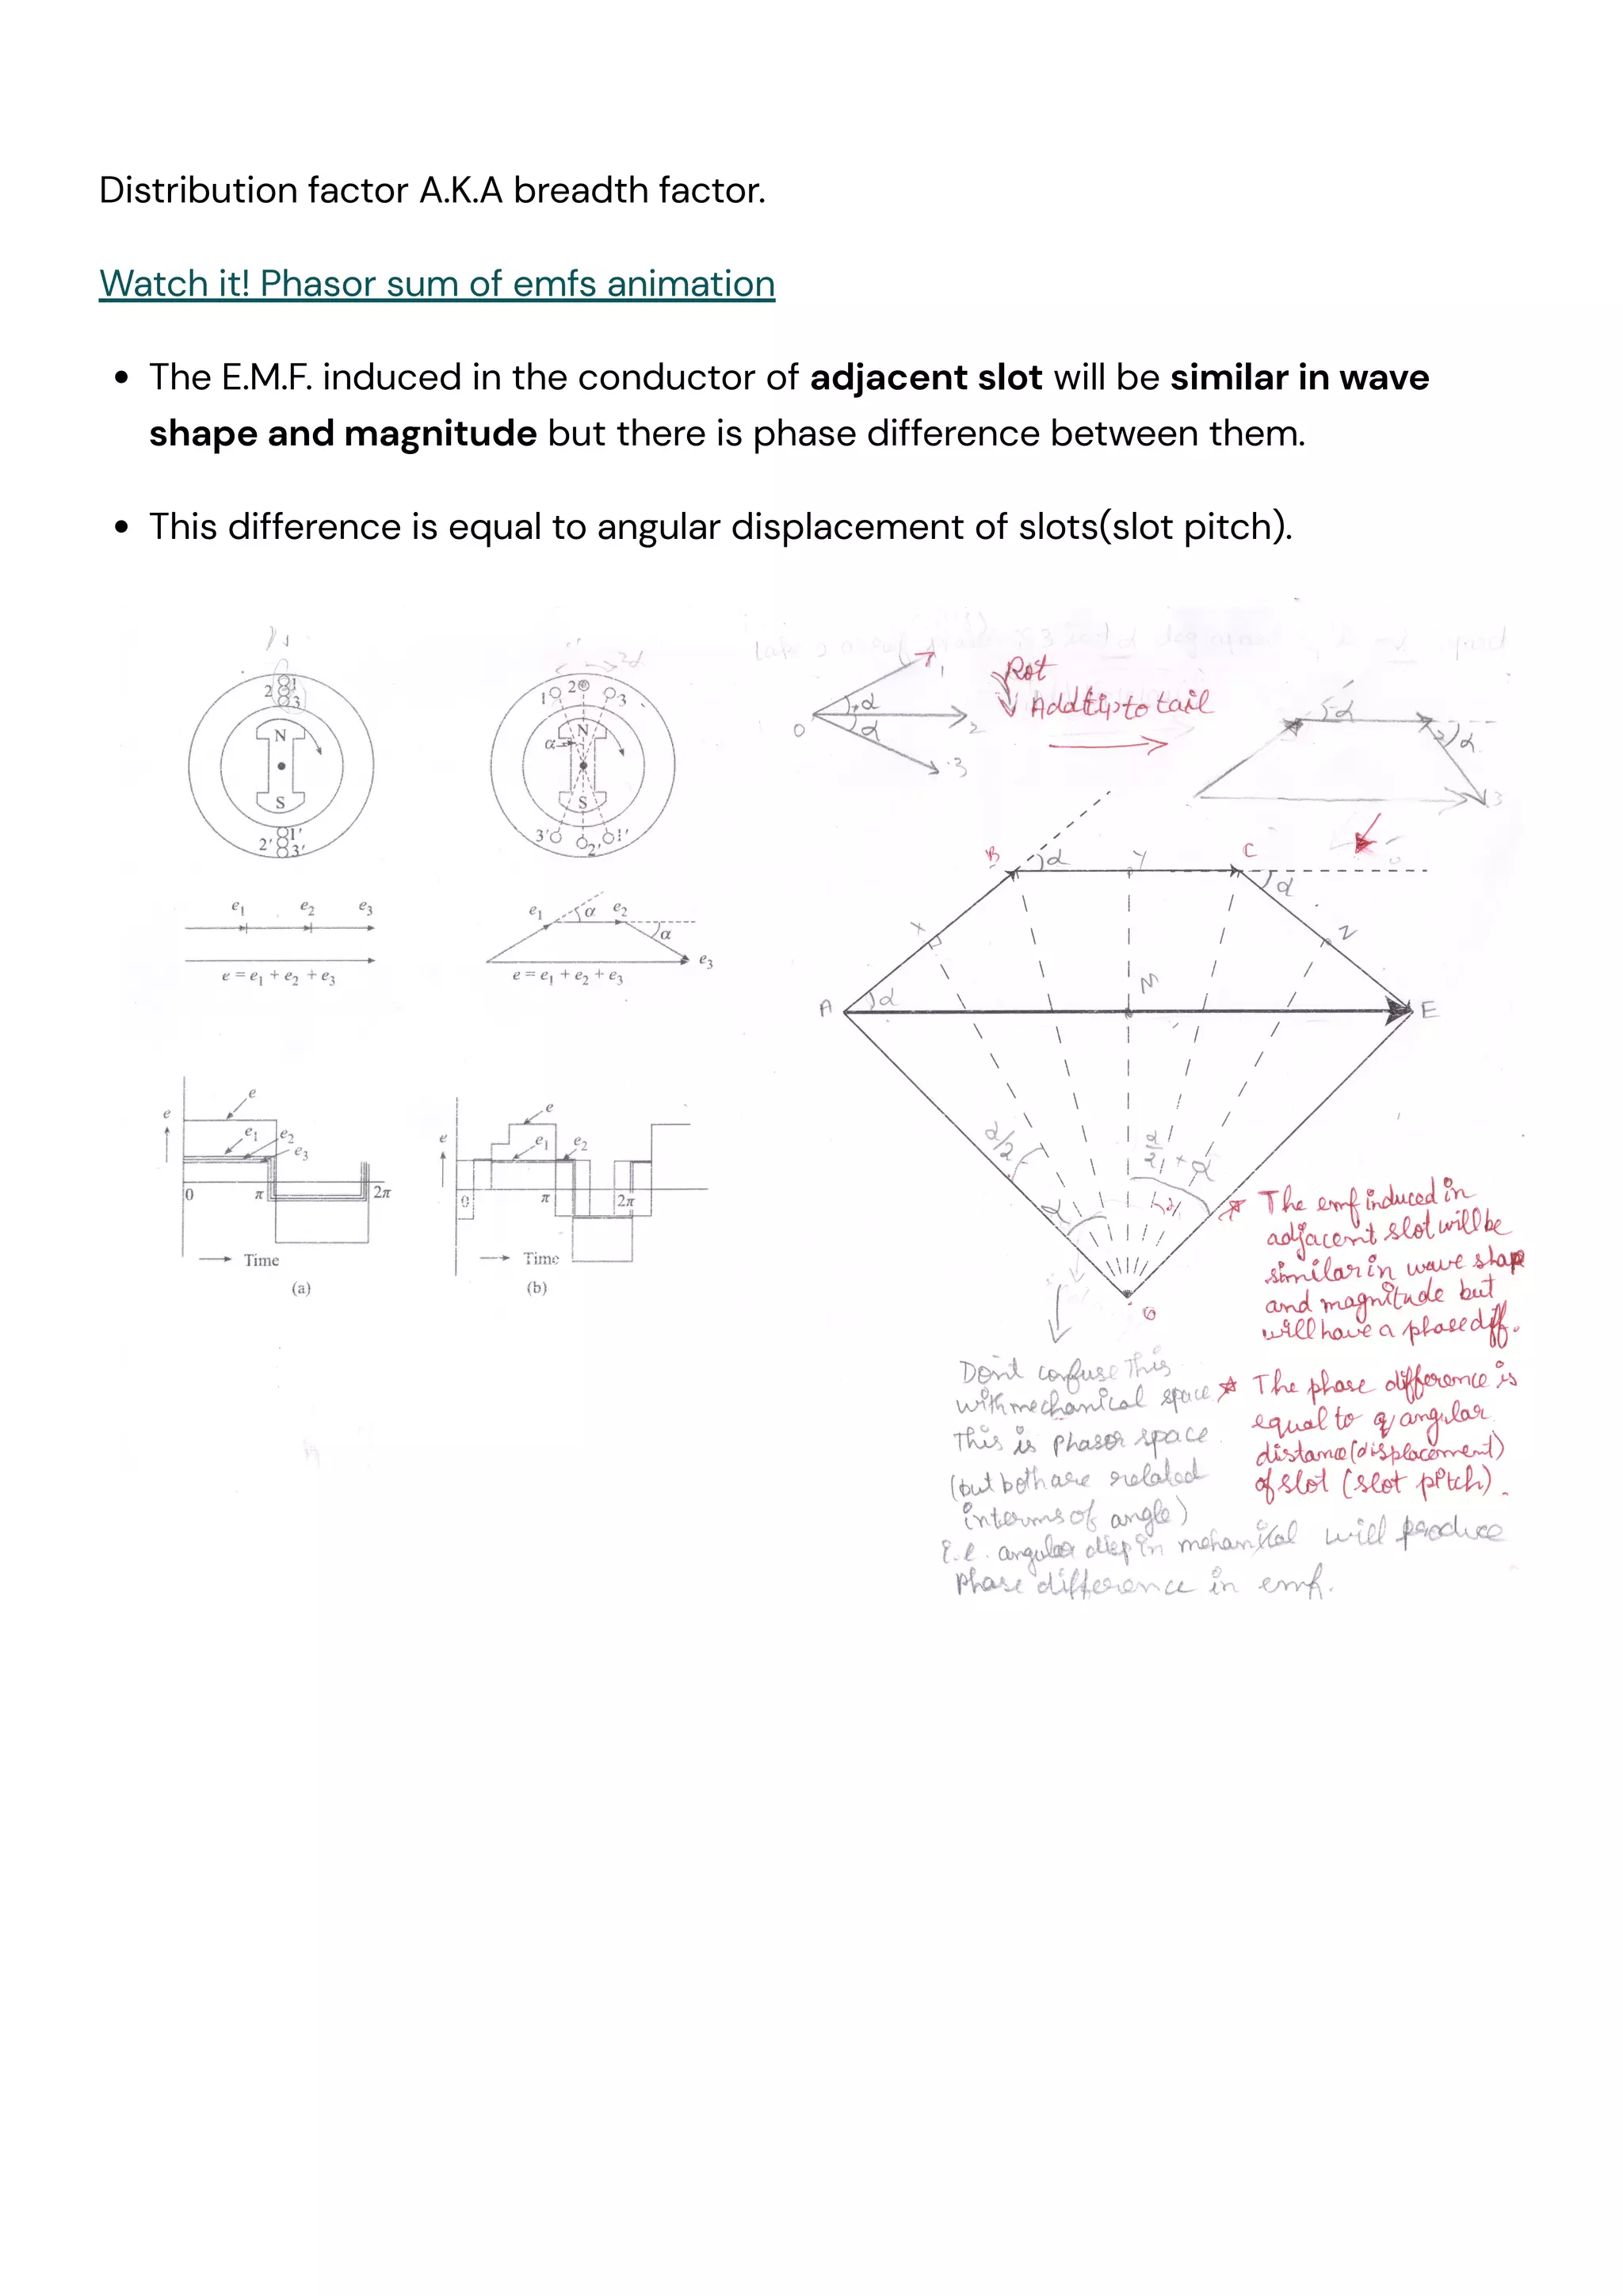 Distribution factor A.K.A breadth factor.
Watch it! Phasor sum of emfs animation
• The E.M.F. induced in the conductor of adjacent slot will be similar in wave
shape and magnitude but there is phase difference between them.
• This difference is equal to angular displacement of slots(slot pitch).
2 1
3
N
S
2' 1'
3'
e1 e2 e3
e = e1 + e2 + e3
e
e
e1 e2
e3
0 π 2π
Time
(a)
2α
1 2 3
N
α
S
3' 2' 1'
e1 α e2
α
e3
e = e1 + e2 + e3
e
e
e1 e2
0 π 2π
Time
(b)
1
α
O 2
α
3
Rot
Add tip to tail
α
α
3
B α Y C
α
X Z
A α M E
α/2
α/2 + α
α
G
Don't confuse This
with mechanical space
This is phasor space.
(but both are related
interms of angle)
i.e. angular disp in mehanical will produce
phase difference in emf.
☆ The emf induced in
adjacent slot will be
similar in wave shap
and magnitude but
will have a phase diff.
☆ The phase difference is
equal to angular
distance (displacement)
of slot (slot pitch).